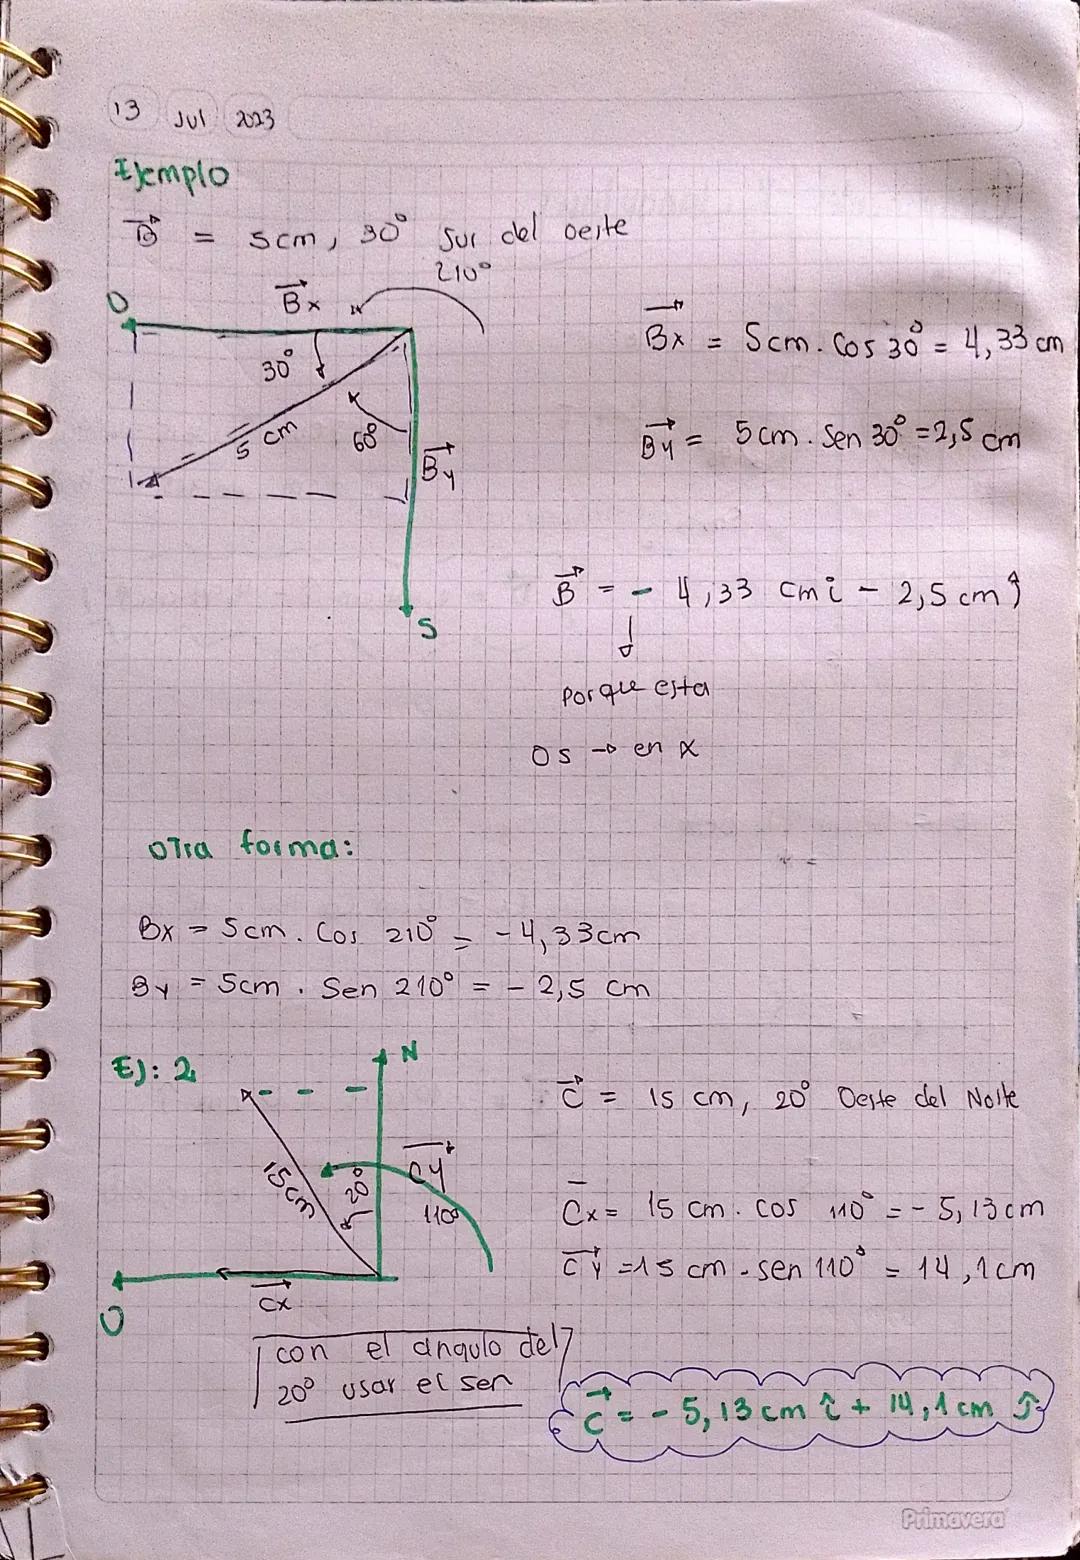 13 Jul 2023
Ejemplo
B = 5cm, 30° Sur del oeste
210°
Bx
O
30°
5 cm
60°
By
S
Bx = 5cm. Cos 30° = 4,33 cm
By = 5cm. Sen 30° = 2,5 cm
B = - 4,33 cm i - 2,5 cm j
↓
Porque esta
Os → en x
Otra forma:
Bx = 5cm. Cos 210° = -4,33cm
By = 5cm. Sen 210° = - 2,5 cm
Ej: 2
N
15cm
20°
Cy
110°
O
Cx
C = 15 cm, 20° Oeste del Norte
Cx = 15 cm. cos 110° = - 5,13cm
Cy = 15 cm. sen 110° = 14,1cm
con el angulo del
20° usar el sen
C = - 5,13cm î + 14,1cm ĵ
Primavera